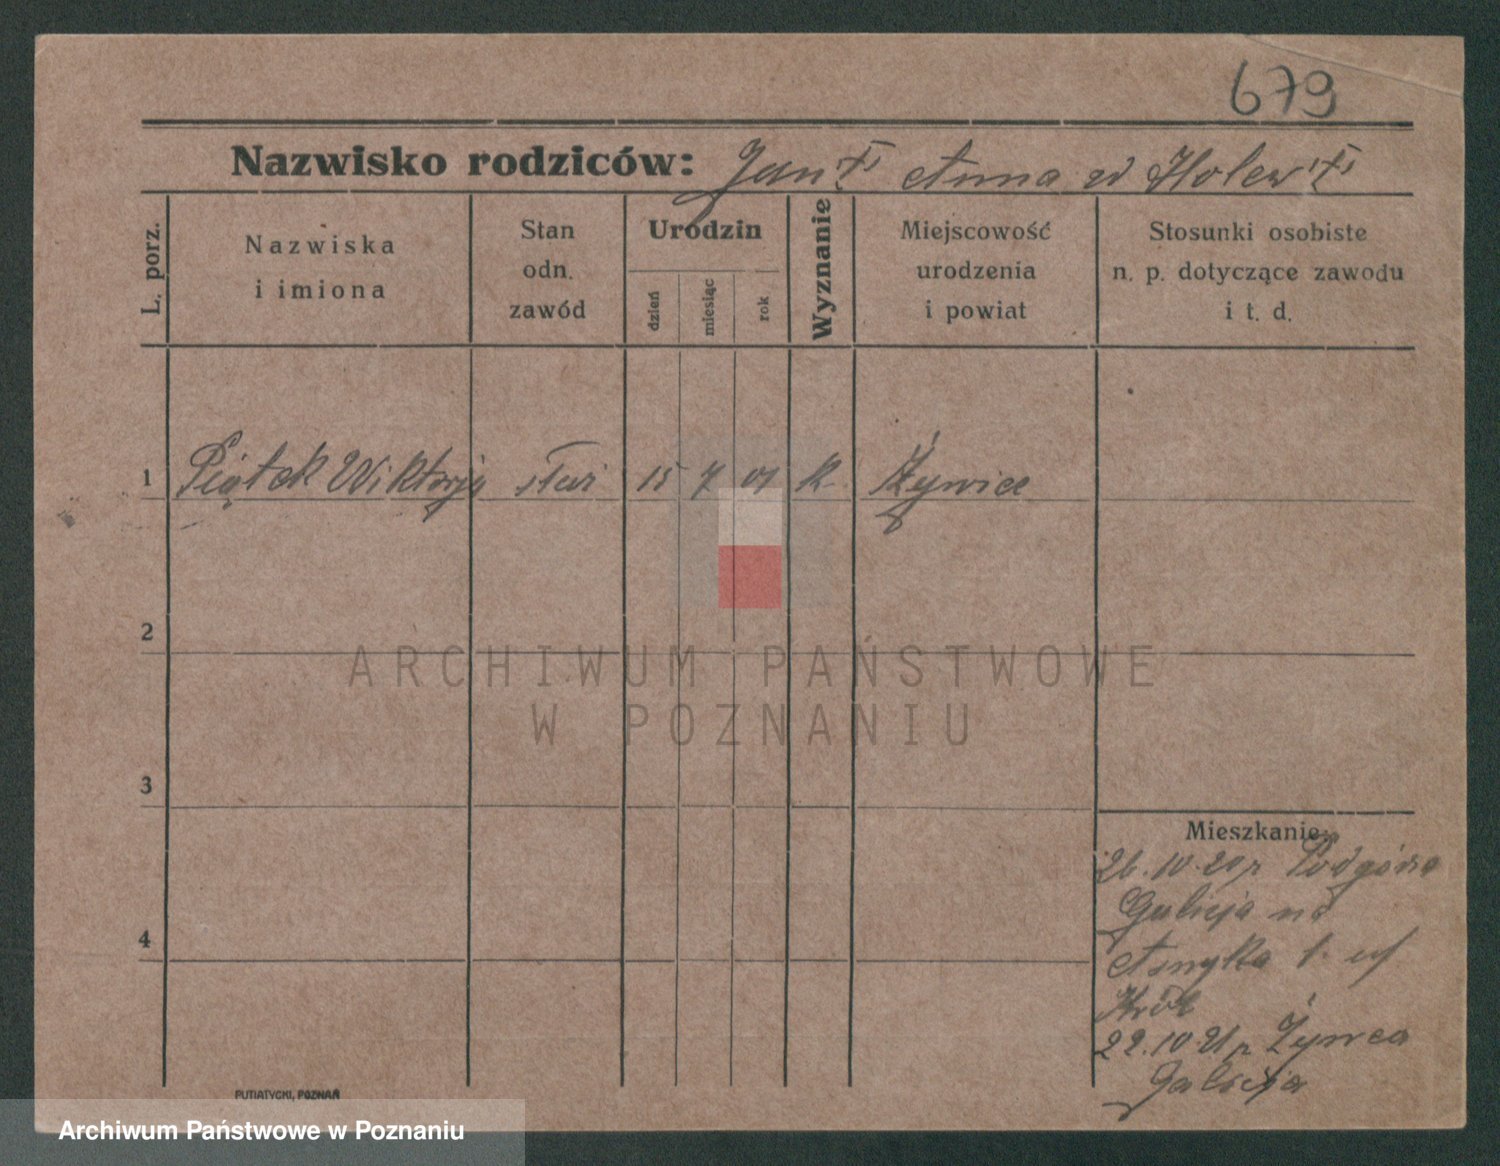 679
Nazwisko rodziców: Jan Anna
L. porz.
Nazwiska
i imiona
Stan
odn.
zawód
Urodzin
dzień
miesiąc
rok
Wyznanie
Miejscowość
urodzenia
i powiat
Stosunki osobiste
n. p. dotyczące zawodu
i t. d.
1 Piątek Wiktorja 15 7 01 k. Żywiec
2
ARCHIWUM PAŃSTWOWE
W POZNANIU
3
4
Mieszkanie:
26.10.20 Podgórza
Galicja
Asnyka 1.
Król
22.10.21 p Żywca
Galicja
PUTIATYCKI, POZNAŃ
Archiwum Państwowe w Poznaniu